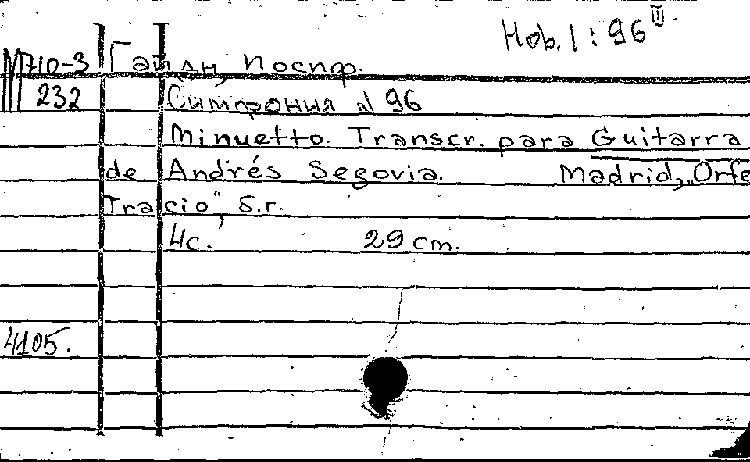 Hob. I : 96 III.
М710-3 Гайдн, Йосиф.
232 Симфония № 96
Minuetto. Transcr. para Guitarra
de Andrés Segovia. Madrid, „Orfe
Tracio“, s.r.
4 с. 29 cm.
4105.